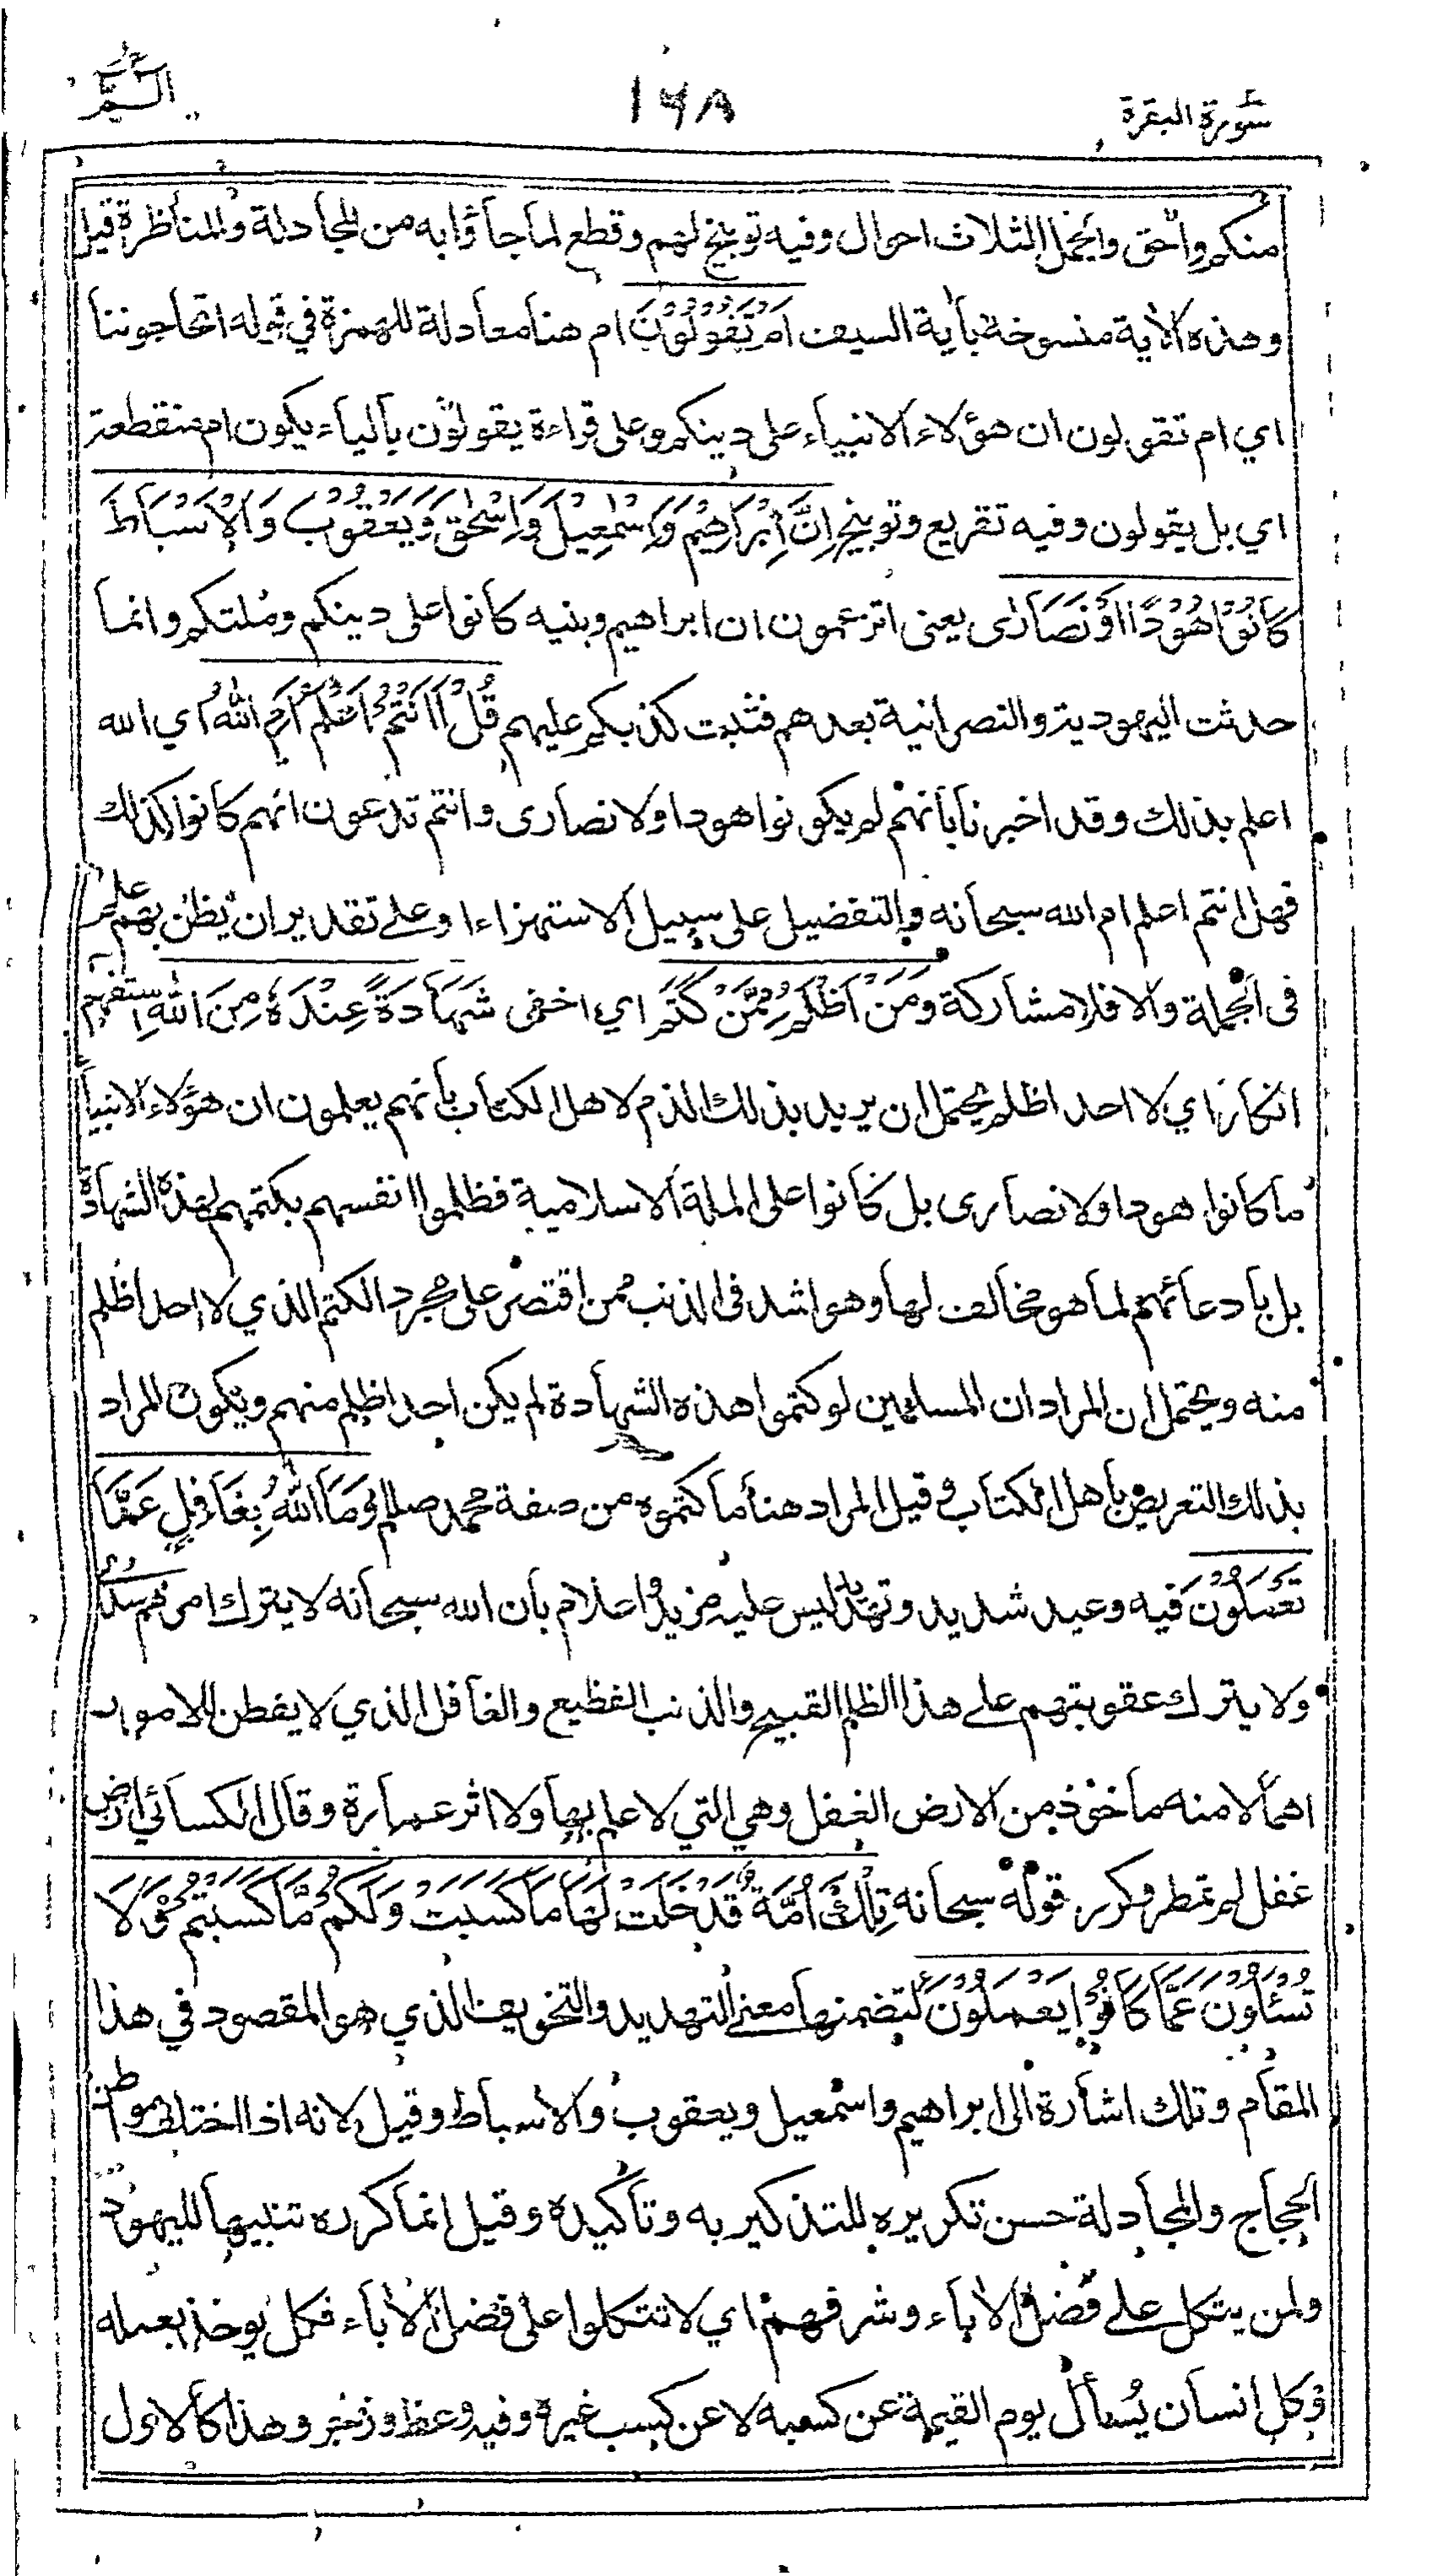 سورة البقرة
١٦٨
الۤمّۤ
منكم واحق والجمل الثلاث احوال وفيه توبيخ لهم وقطع لما جاؤا به من المجادلة والمناظرة قيل
وهذه الاية منسوخة بأية السيف اَمْ تَقُولُونَ ام هنا معادلة للهمزة في قوله اتحاجوننا
اي ام تقولون ان هؤلاء الانبياء على دينكم وعلى قراءة يقولون بالياء يكون ام منقطعة
اي بل يقولون وفيه تقريع وتوبيخ اِنَّ اِبْرَاهِيْمَ وَاِسْمٰعِيْلَ وَاِسْحٰقَ وَيَعْقُوْبَ وَالْاَسْبَاطَ
كَانُوْا هُوْدًا اَوْ نَصَارٰى يعني اتزعمون ان ابراهيم وبنيه كانوا على دينكم وملتكم وانما
حدثت اليهودية والنصرانية بعدهم فثبت كذبكم عليهم قُلْ ءَاَنْتُمْ اَعْلَمُ اَمِ اللّٰهُ اي الله
اعلم بذلك وقد اخبرنا بأنهم لم يكونوا هودا ولا نصارى وانتم تدعون انهم كانوا كذلك
فهل انتم اعلم ام الله سبحانه والتفضيل على سبيل الاستهزاء او على تقدير ان يظن بهم علم
في الجملة والا فلا مشاركة وَمَنْ اَظْلَمُ مِمَّنْ كَتَمَ اي اخفى شَهَادَةً عِنْدَهٗ مِنَ اللّٰهِ استفهام
انكار اي لا احد اظلم يحتمل ان يريد بذلك الذم لاهل الكتاب بأنهم يعلمون ان هؤلاء الانبياء
ما كانوا هودا ولا نصارى بل كانوا على الملة الاسلامية فظلموا انفسهم بكتمهم لهذه الشهادة
بل بادعائهم لما هو مخالف لها وهو اشد في الذنب ممن اقتصر على مجرد الكتم الذي لا احد اظلم
منه ويحتمل ان المراد ان المسلمين لو كتموا هذه الشهادة لم يكن احد اظلم منهم ويكون المراد
بذلك التعريض بأهل الكتاب وقيل المراد هنا ما كتموه من صفة محمد صللم وَمَا اللّٰهُ بِغَافِلٍ عَمَّا
تَعْمَلُوْنَ فيه وعيد شديد وتهديد ليس عليه مزيد واعلام بأن الله سبحانه لا يترك امرهم سدى
ولا يترك عقوبتهم على هذا الظلم القبيح والذنب الفظيع والغافل الذي لا يفطن للامور
اهمالا منه مأخوذ من الارض الغفل وهي التي لا علم بها ولا اثر عمارة وقال الكسائي ارض
غفل لم تمطر وكرر قوله سبحانه تِلْكَ اُمَّةٌ قَدْ خَلَتْ لَهَا مَا كَسَبَتْ وَلَكُمْ مَّا كَسَبْتُمْ وَلَا
تُسْئَلُوْنَ عَمَّا كَانُوْا يَعْمَلُوْنَ لتضمنها معنى التهديد والتخويف الذي هو المقصود في هذا
المقام وتلك اشارة الى ابراهيم واسمعيل ويعقوب والاسباط وقيل لانه اذا اختلف مواطن
الحجاج والمجادلة حسن تكريره للتذكير به وتأكيده وقيل انما كرره تنبيها لليهود
ولمن يتكل على فضل الأباء وشرفهم اي لا تتكلوا على فضل الأباء فكل يوخذ بعمله
وكل انسان يُسأل يوم القيمة عن كسبه لا عن كسب غيره وفيه وعظ وزجر وهذا كالاول